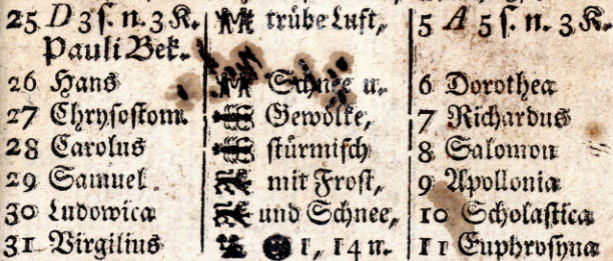 25 D 3 ſ. n. 3 K. trübe Luft, 5 A 5 ſ. n. 3 K.
Pauli Bek.
26 Hans Schnee u. 6 Dorothea
27 Chryſoſtom. Gewölke, 7 Richardus
28 Carolus ſtürmiſch 8 Salomon
29 Samuel. mit Froſt, 9 Apollonia
30 Ludowica und Schnee, 10 Scholaſtica
31 Virgilius 1, 14 n. 11 Euphroſyna